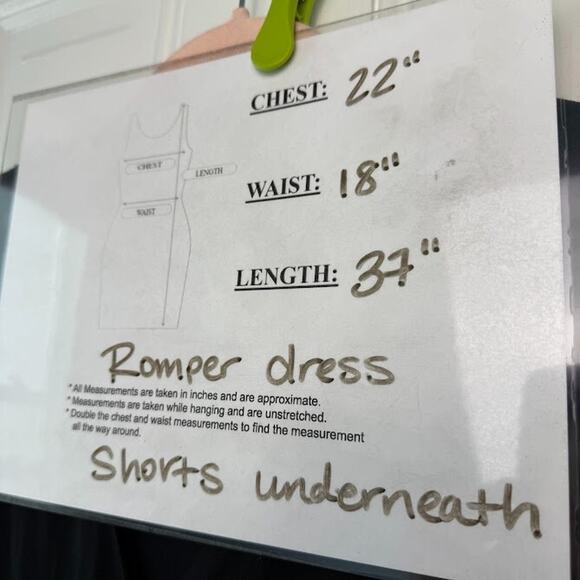 CHEST: 22"
CHEST
LENGTH
WAIST: 18"
WAIST
LENGTH: 37"
Romper dress
* All Measurements are taken in inches and are approximate.
* Measurements are taken while hanging and are unstretched.
* Double the chest and waist measurements to find the measurement
all the way around.
Shorts underneath